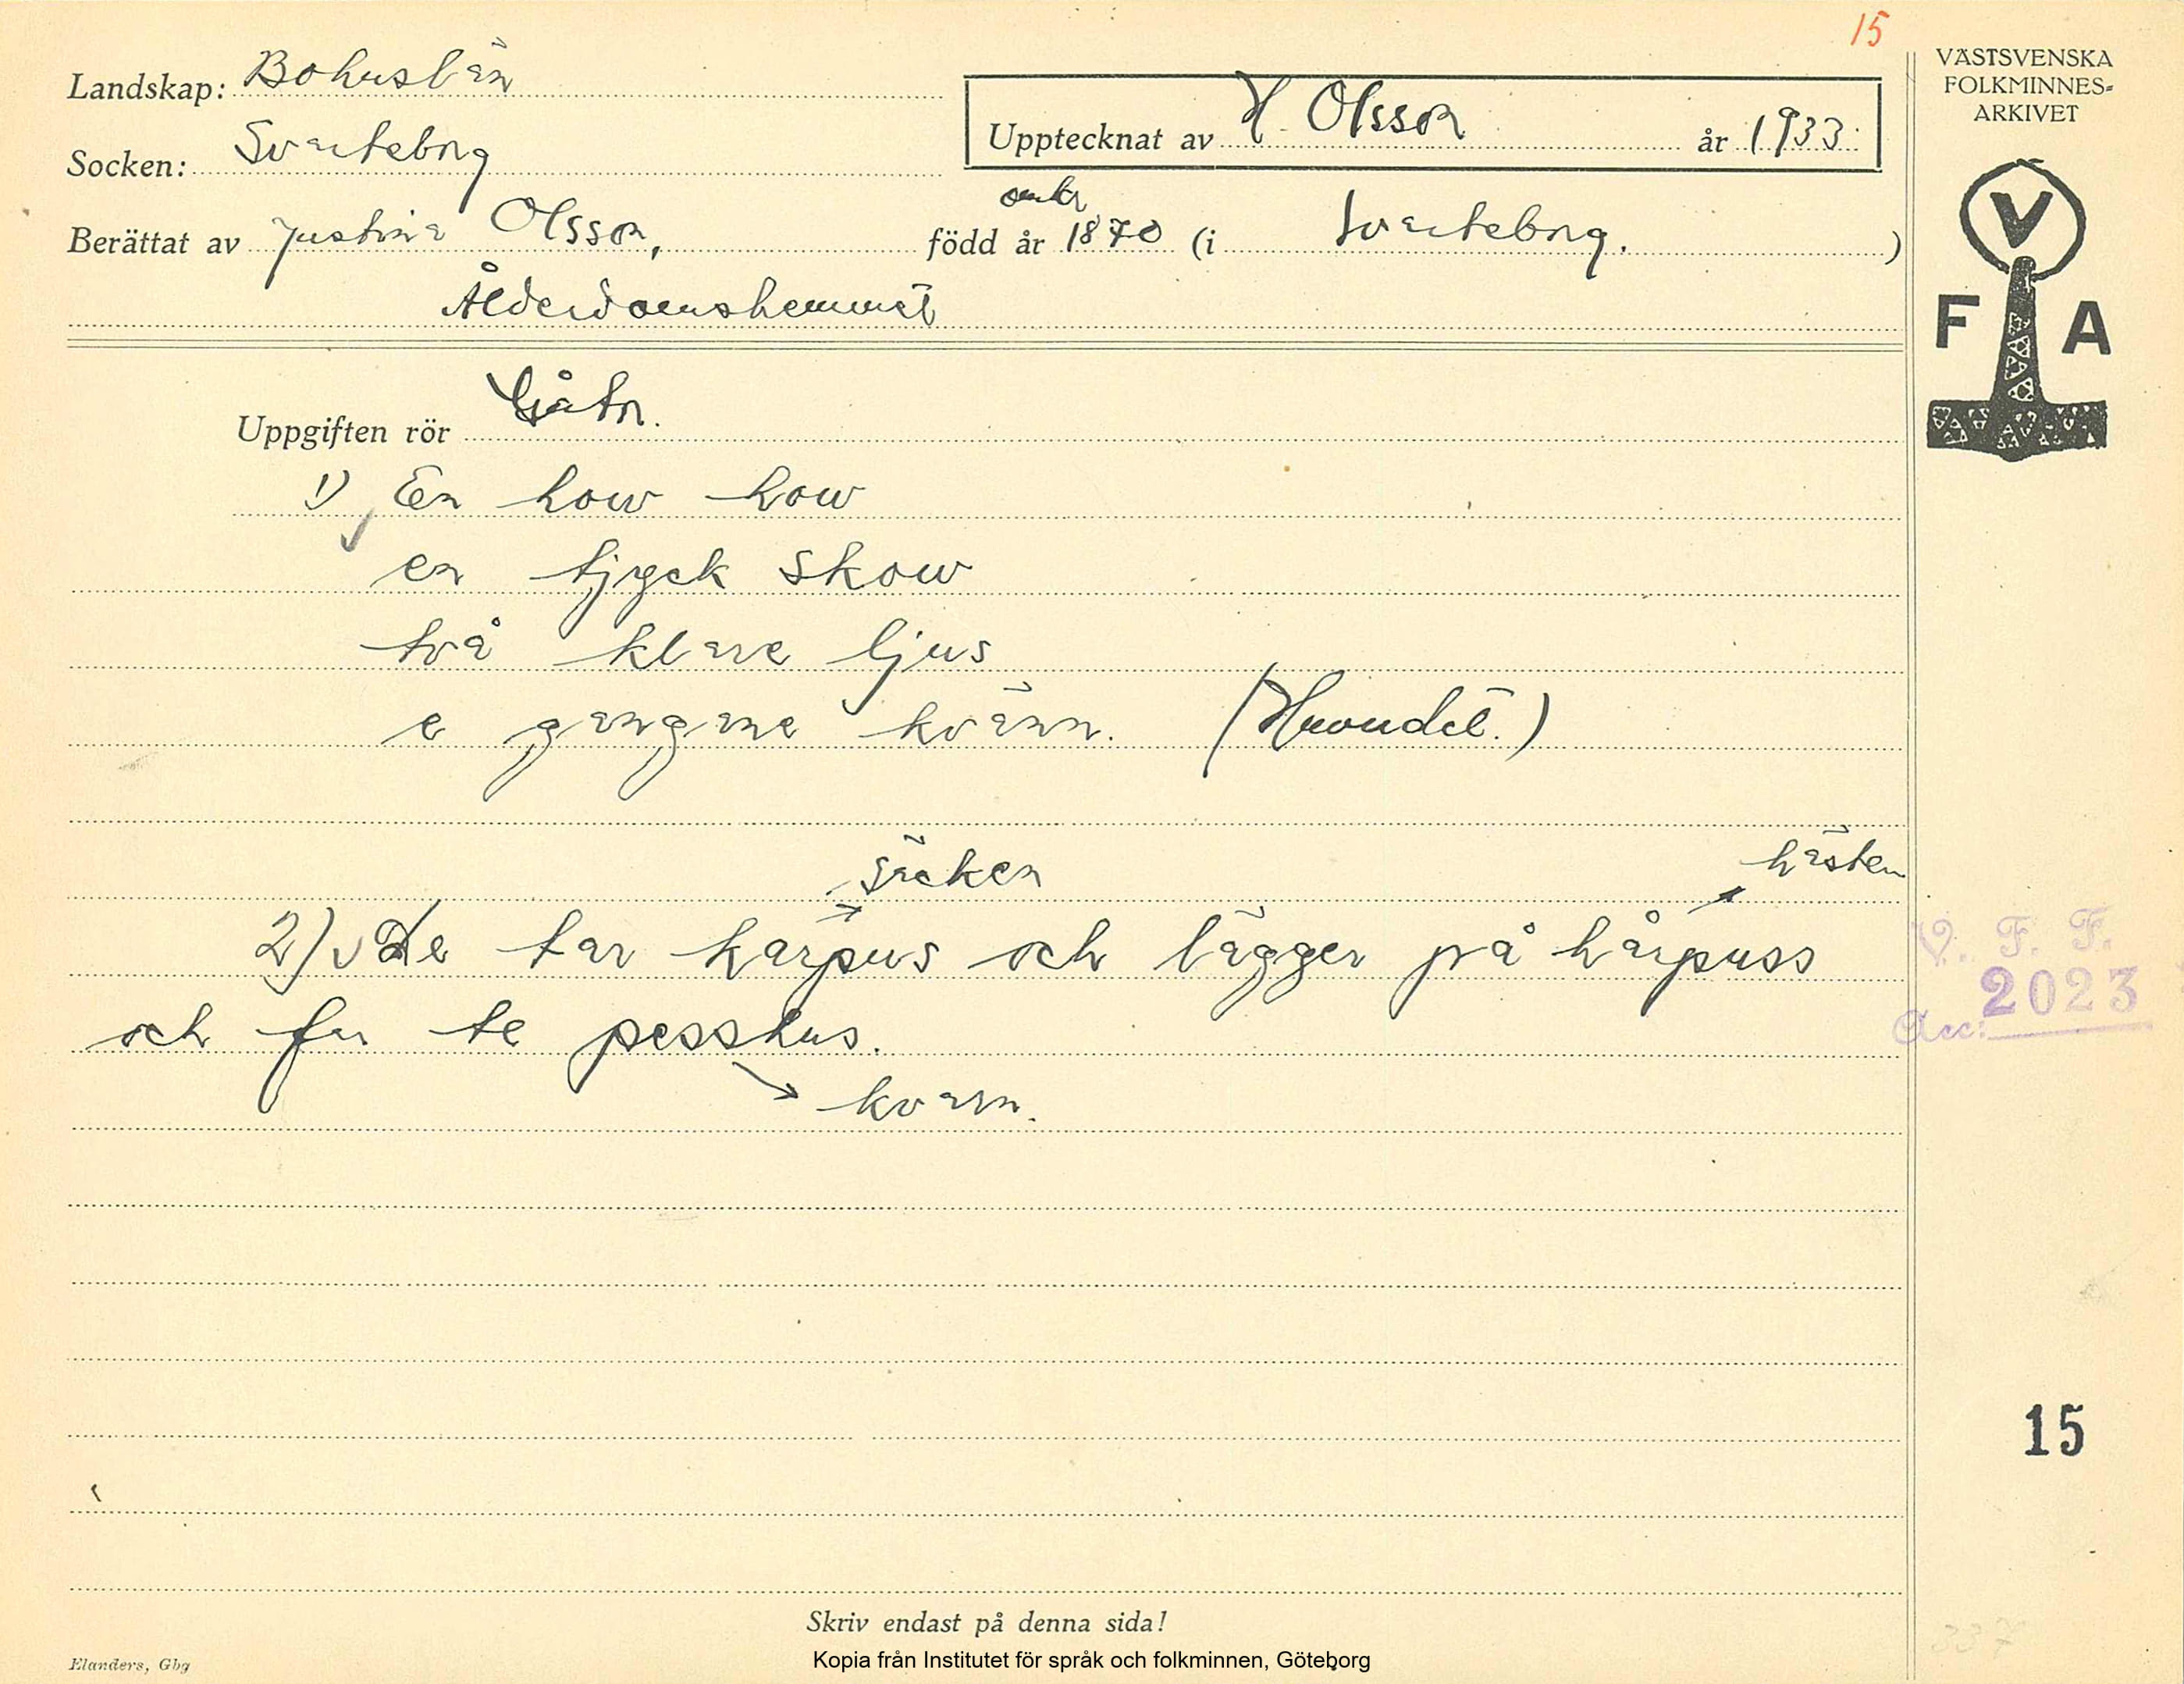 15
Landskap: Bohuslän
VÄSTSVENSKA
FOLKMINNES-
ARKIVET
Upptecknat av H. Olsson år 1933.
Socken: Svarteborg
omkr
Berättat av Justina Olsson, född år 1870 (i Svarteborg.)
Ålderdomshemmet
V
F A
Uppgiften rör Gåtor.
1) En how how
en tjyck skow
två klare ljus
e gangane kvänn. (Huvudet.)
säcken hästen
2) De tar karpus och lägger på hårpuss
och far te pesshus.
kvarn.
V. F. F.
Acc: 2023
15
Skriv endast på denna sida!
Elanders, Gbg
Kopia från Institutet för språk och folkminnen, Göteborg
337